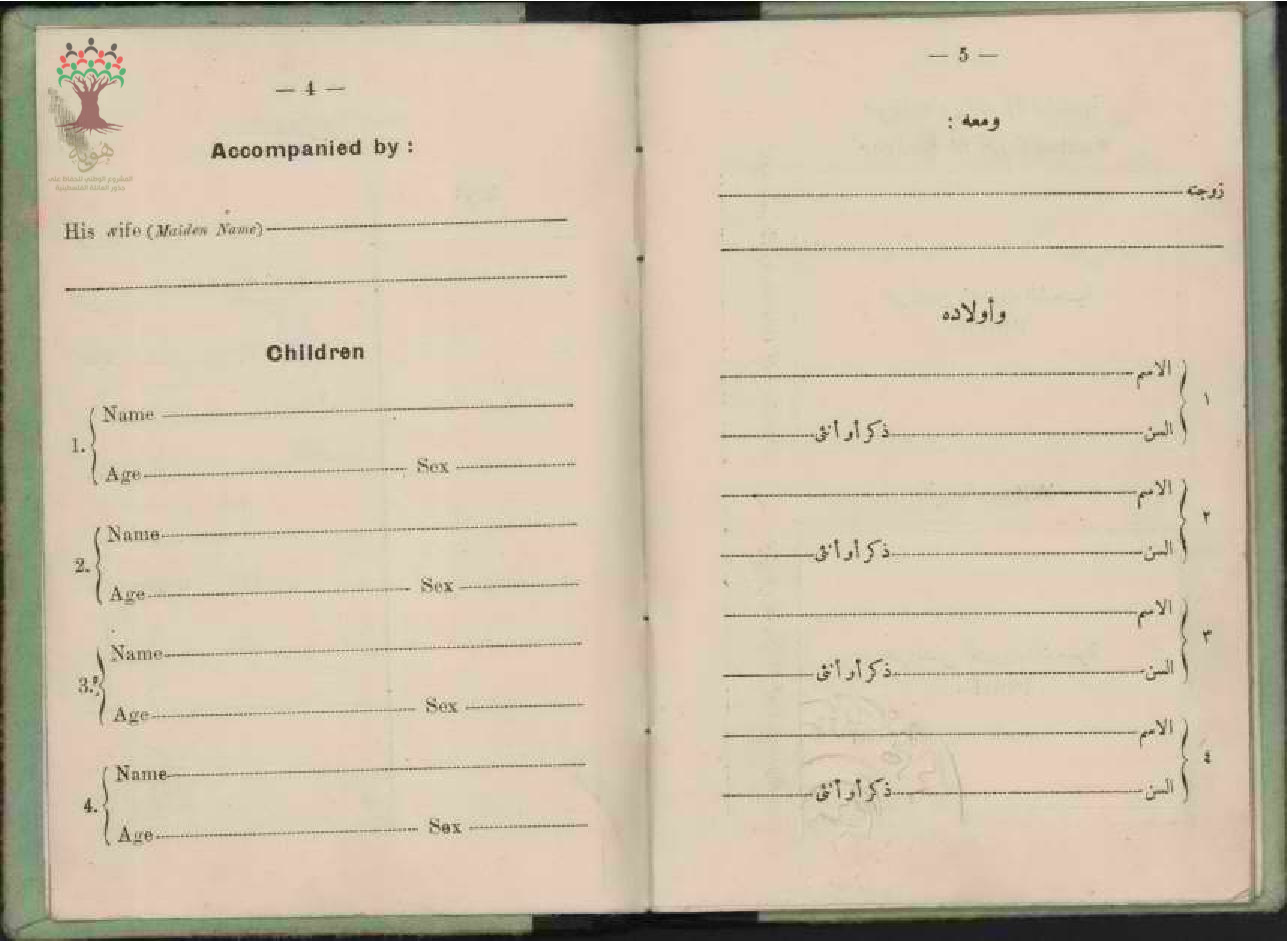 هوية
المشروع الوطني للحفاظ على
جذور العائلة الفلسطينية
— 4 —
Accompanied by :
His wife (Maiden Name)
Children
1. Name
Age Sex
2. Name
Age Sex
3. Name
Age Sex
4. Name
Age Sex
— 5 —
ومعه :
زوجته
وأولاده
١ الاسم
السن ذكر أو أنثى
٢ الاسم
السن ذكر أو أنثى
٣ الاسم
السن ذكر أو أنثى
٤ الاسم
السن ذكر أو أنثى